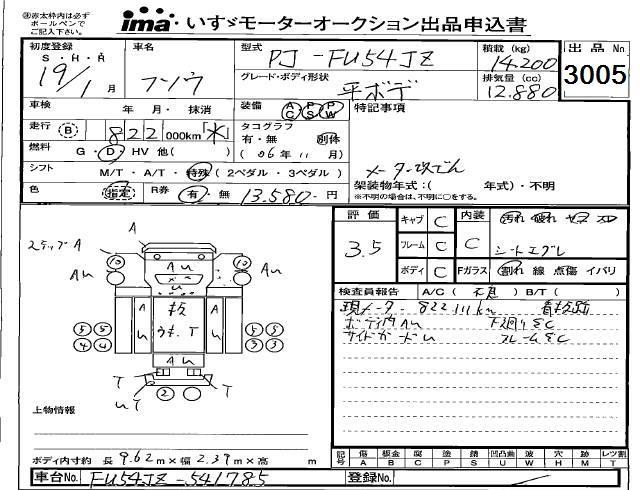 ㊟赤太枠内は必ず
ボールペンで
ご記入下さい。
ima いすゞモーターオークション出品申込書
初度登録 車名 型式 PJ-FU54JZ 積載(kg) 14.200 出品No.
S・H・R 19/1月 フソウ グレード・ボディ形状 平ボデ 排気量(cc) 12.880 3005
車検 年 月・抹消 装備 AC PS PW 特記事項
走行 B 822 000km 「*」 タコグラフ 有・無 別体
燃料 G・D・HV 他( ) (06年11月)
シフト M/T・A/T・特殊(2ペダル・3ペダル) メーター改ざん
架装物年式:( 年式)・不明
※不明の場合は、不明に○をする。
色 指定 R券 有・無 13.580-円
評価 キャブ C 内装 汚れ 破れ
3.5 フレーム C C シートエグレ
ボディ C Fガラス 割れ 線 点傷 イバリ
検査員報告 A/C( ) B/T( )
現メーター 822111km
ボディ内AU 下廻りSC
サイドガードU フレームSC
ステップA A
10 AU 10
AU AU
U
A U A U
T
5 5 5 5
4 4 3 3
AU
T T
UT 2
上物情報
ボディ内寸約 長 9.62m 幅 2.39m 高 m
記号 傷 A 板金 B 腐 C 塗 P 錆 S 凹凸曲 U 波 W 穴 H 跡 M レツ割 T
車台No. FU54JZ-541785 登録No.